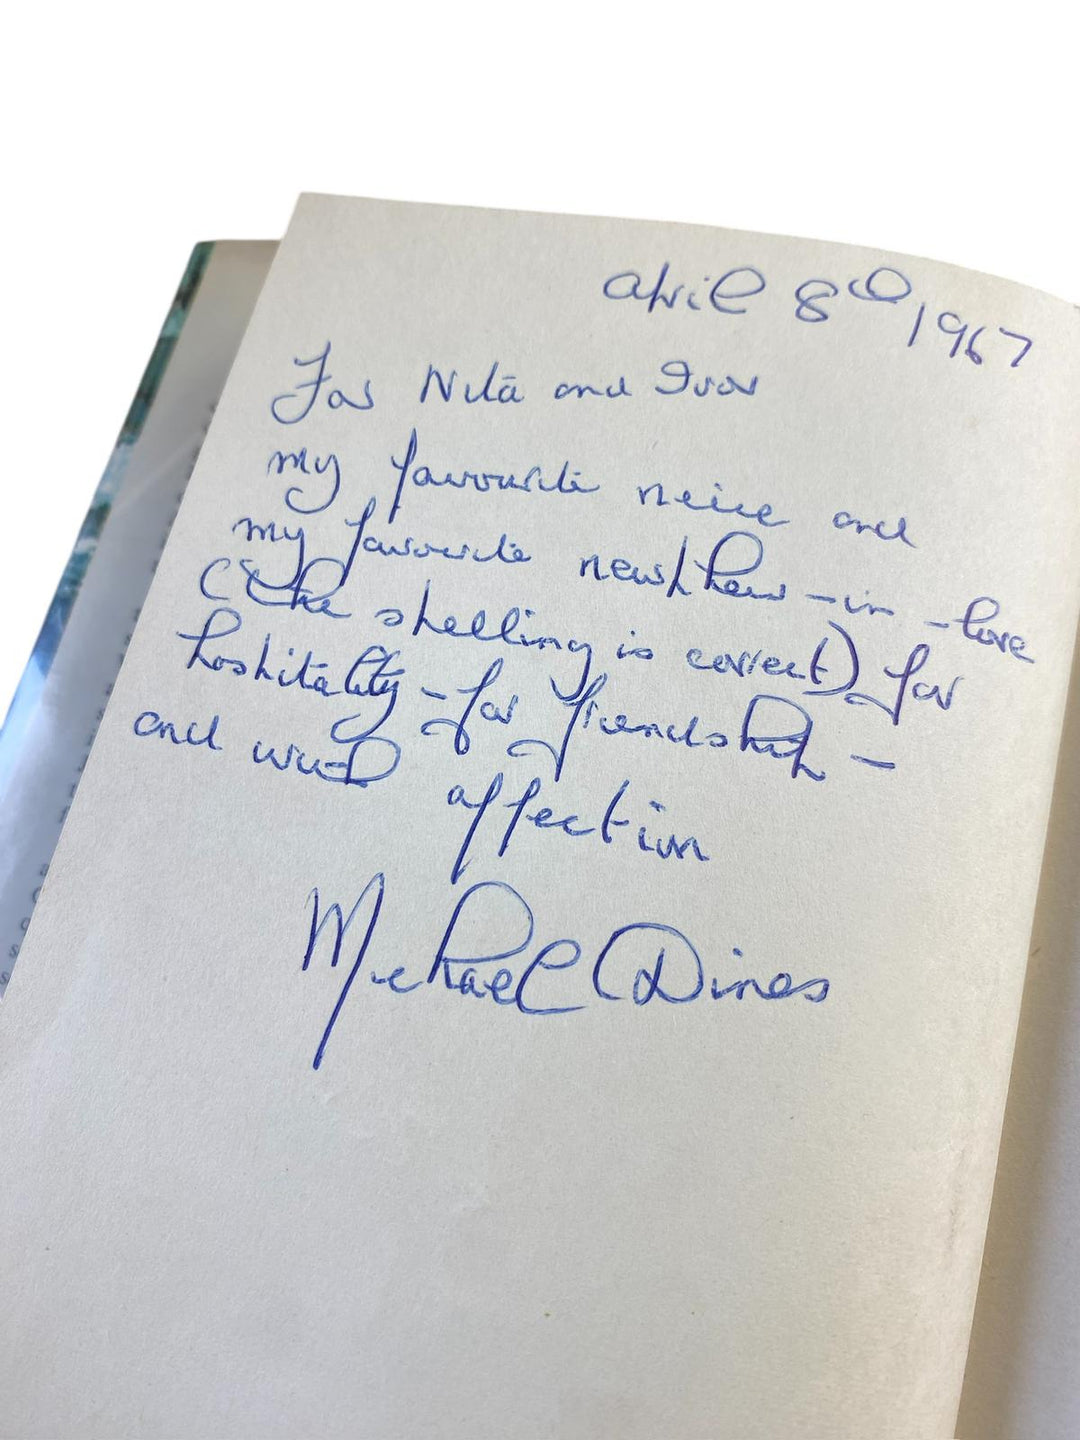 April 8th 1967
For Nita and Ivor
my favourite neice and
my favourite newphew-in-love
(the spelling is correct) for
hospitality - for friendship -
and with affection
Michael Dines